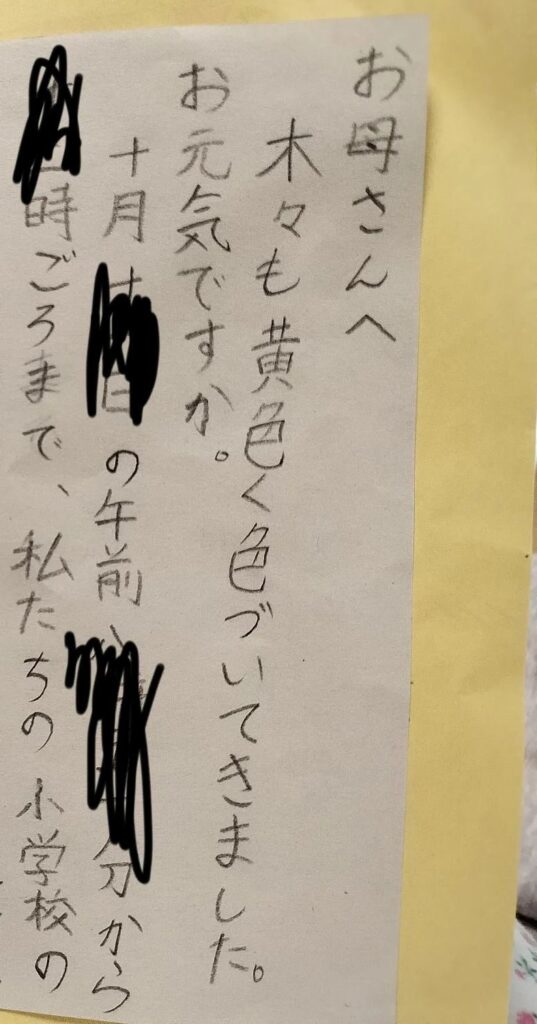 お母さんへ
木々も黄色く色づいてきました。
お元気ですか。
十月 の午前 分から
時ごろまで、私たちの小学校の